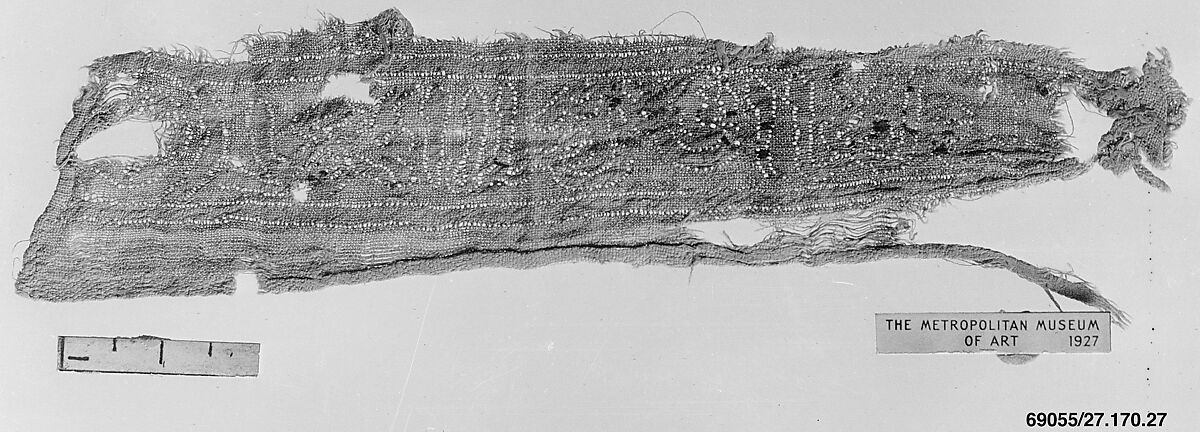 THE METROPOLITAN MUSEUM
OF ART 1927
69055/27.170.27